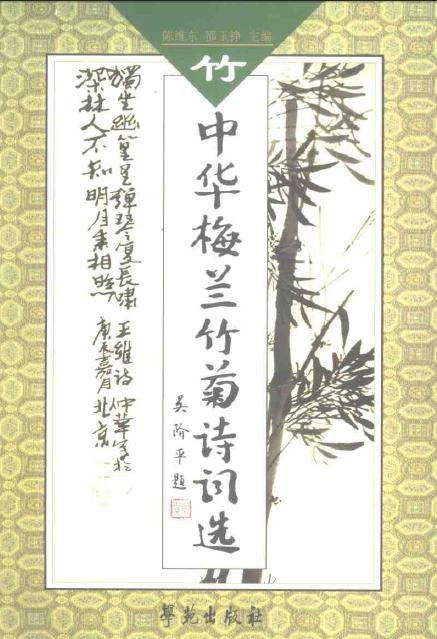 陈维东 邵玉铮 主编
竹
中华梅兰竹菊诗词选
吴阶平题
獨坐幽篁里彈琴复長嘯 王維詩 仲華書於
深林人不知明月来相照 庚辰嘉月北京
學苑出版社